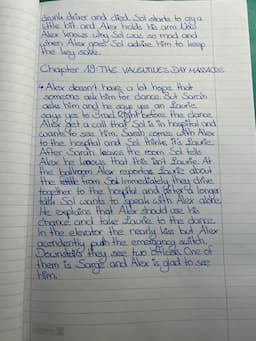 drunk driver and died. Sol starts to cry a
little bit and Alex holds his arm. Now
Alex knows why Sol was so mad and
when Alex goes Sol advise him to keep
the key safe.
Chapter 19: THE VALENTINES DAY MASSACRE
Alex doesn't have a lot hope that
someone ask him for dance. But Sarah
asks him and he says yes an Laurie
says yes to Brad. Right before the dance
Alex get a call that Sol is in hospital and
wants to see him. Sarah comes with Alex
to the hospital and Sol thinks it's Laurie.
After Sarah leaves the room Sol tells
Alex he knows that this isn't Laurie. At
the ballroom Alex reportes Laurie about
the from Sol. Immediately they drive
together to the hospital and after a longer
talk Sol wants to speak with Alex alone.
He explains that Alex should use his
chance and take Laurie to the dance.
In the elevator they nearly kiss but Alex
acendently push the emergancy switch.
Downstairs they see two officers. One of
them is Sarge and Alex is glad to see
him.